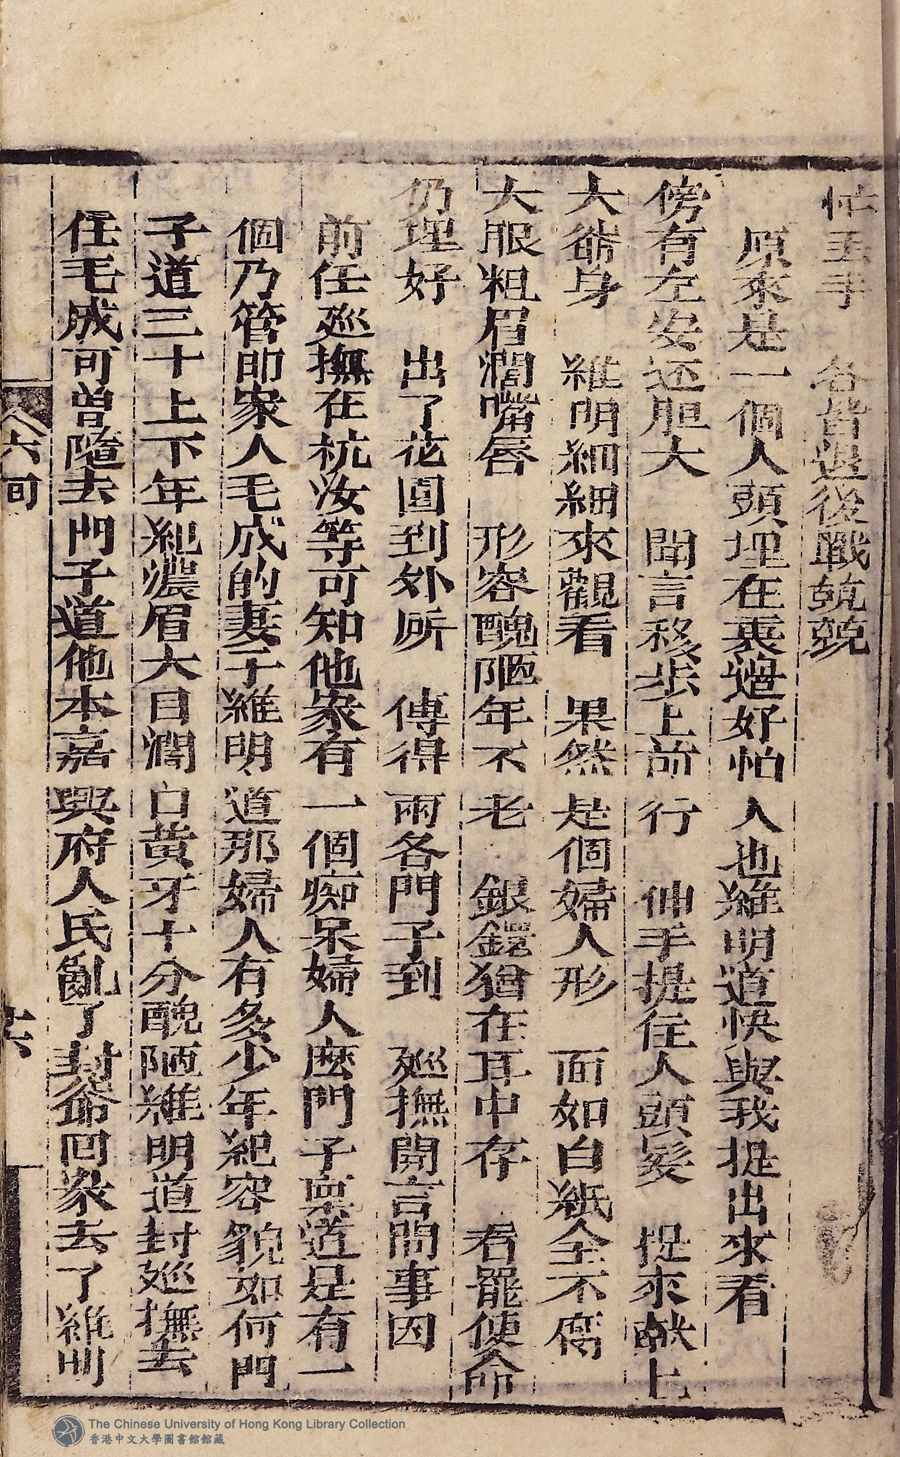 忙丟手　各皆退後戰兢兢
原來是一個人頭埋在裏邉好怕人也維明道快與我提出來看
傍有左安还胆大　聞言移步上前行　伸手提住人頭髮　捉來献上
大爺身　維明細細來觀看　果然是個婦人形　面如白紙全不腐
大服粗眉濶嘴唇　形容醜陋年不老　銀鐶猶在耳中存　看罷便命
仍埋好　出了花園到外所　傳得兩各門子到　廵撫開言問事因
前任廵撫在杭汝等可知他家有一個痴呆婦人麽門子禀道是有一
個乃管卽家人毛成的妻子維明道那婦人有多少年紀容貌如何門
子道三十上下年紀濃眉大目濶口黃牙十分醜陋維明道封廵撫去
任毛成可曾隨去門子道他本嘉興府人氏亂了封爺回家去了維明
六回
The Chinese University of Hong Kong Library Collection
香港中文大學圖書館館藏